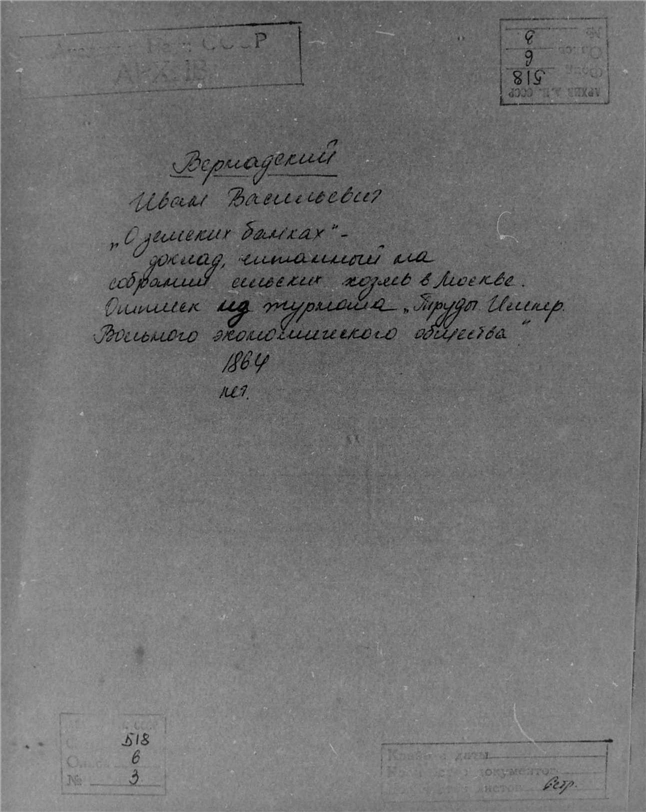 Академия Наук СССР
АРХИВ
АРХИВ А.Н. СССР
Фонд 518
Опись 6
№ 3
Вернадский
Иван Васильевич
„О земских банках"-
доклад, читанный на
собрании сельских хозяев в Москве.
Оттиск из журнала „Труды Импер.
Вольного экономического общества"
1864
печ.
518
Опись 6
№ 3
Крайние даты
Количество документов
листов 6 стр.